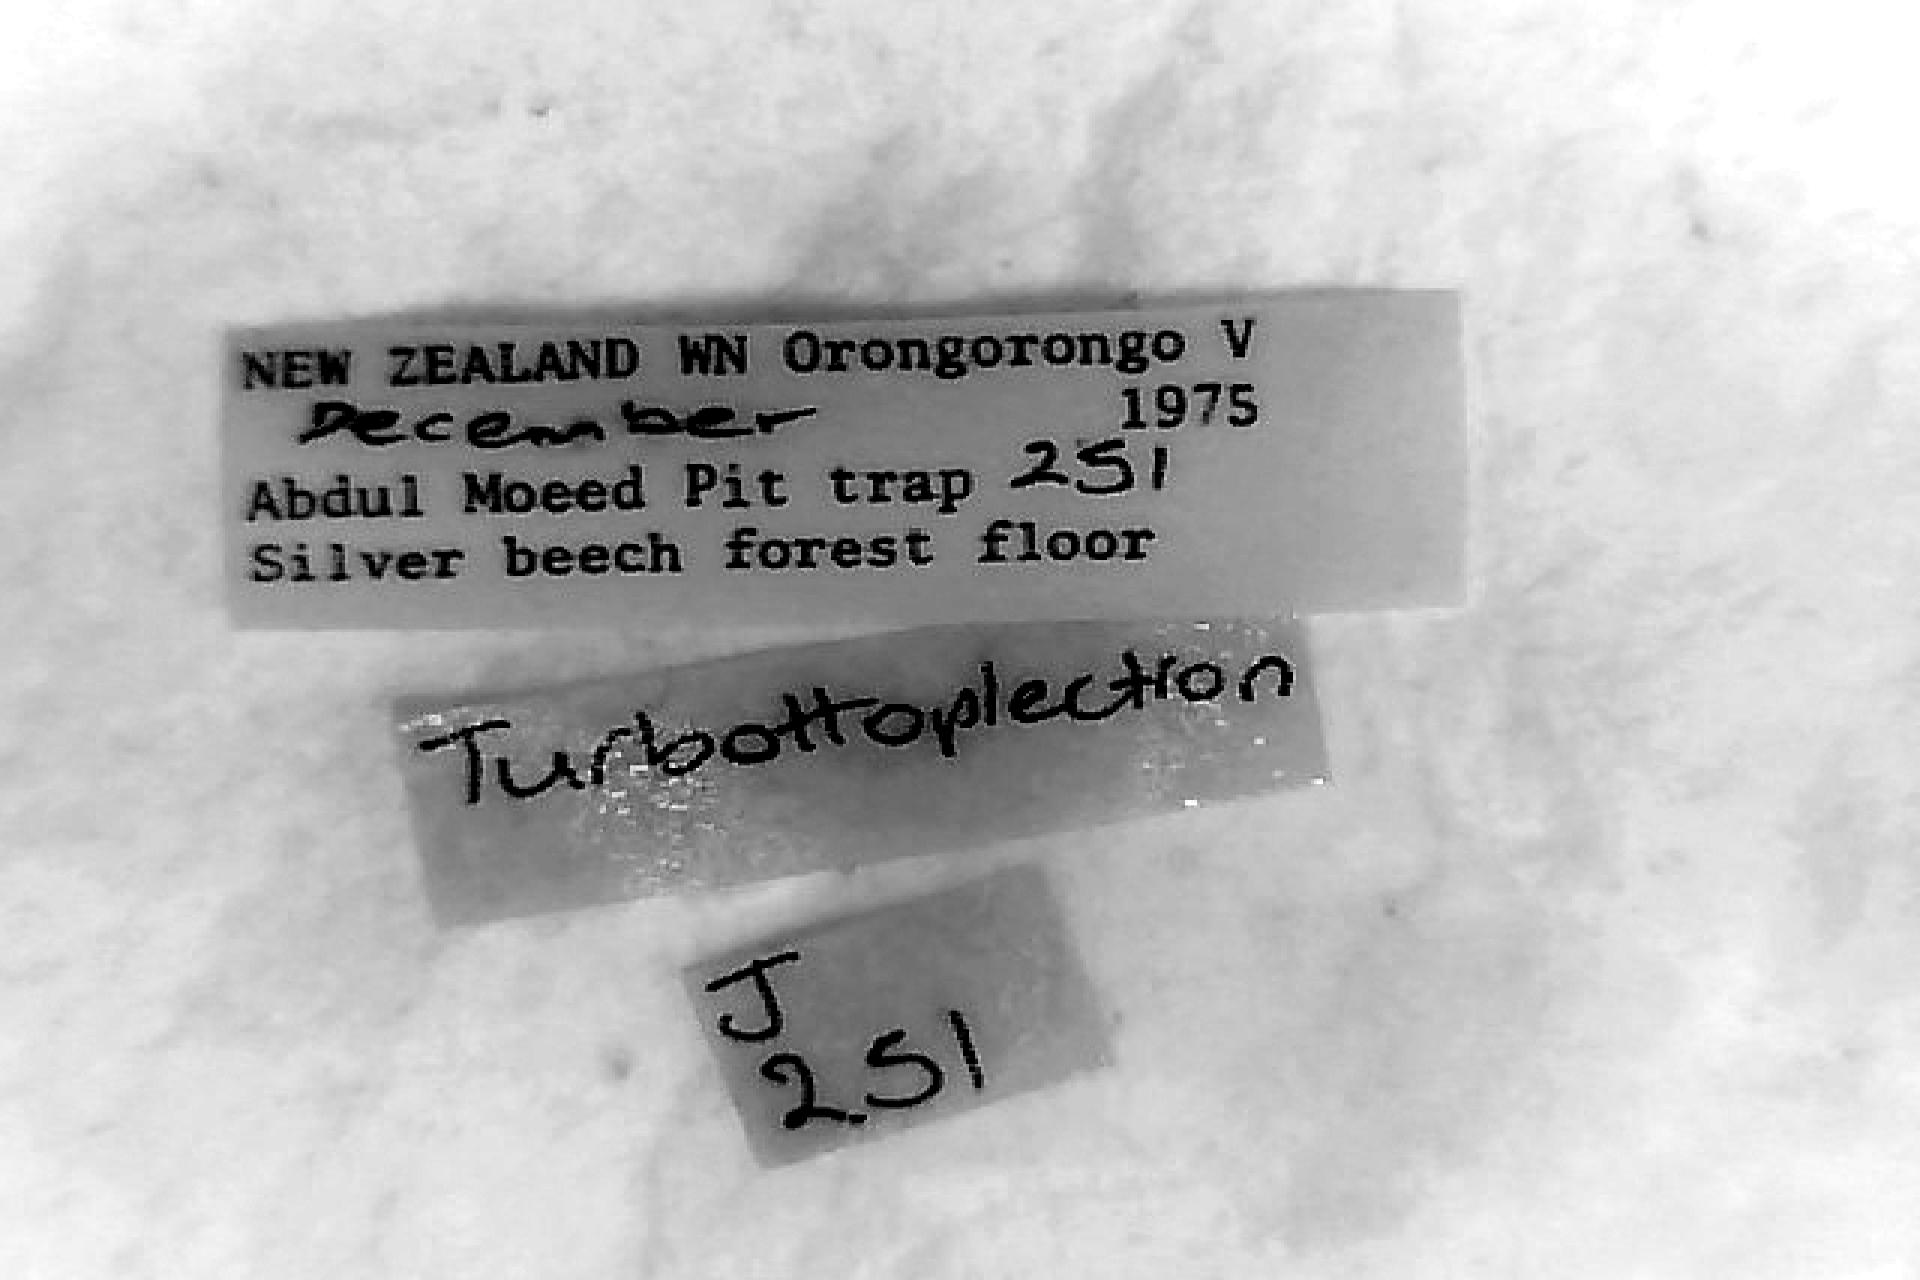 NEW ZEALAND WN Orongorongo V
December 1975
Abdul Moeed Pit trap 2S1
Silver beech forest floor
Turbottoplection
J
2.S1